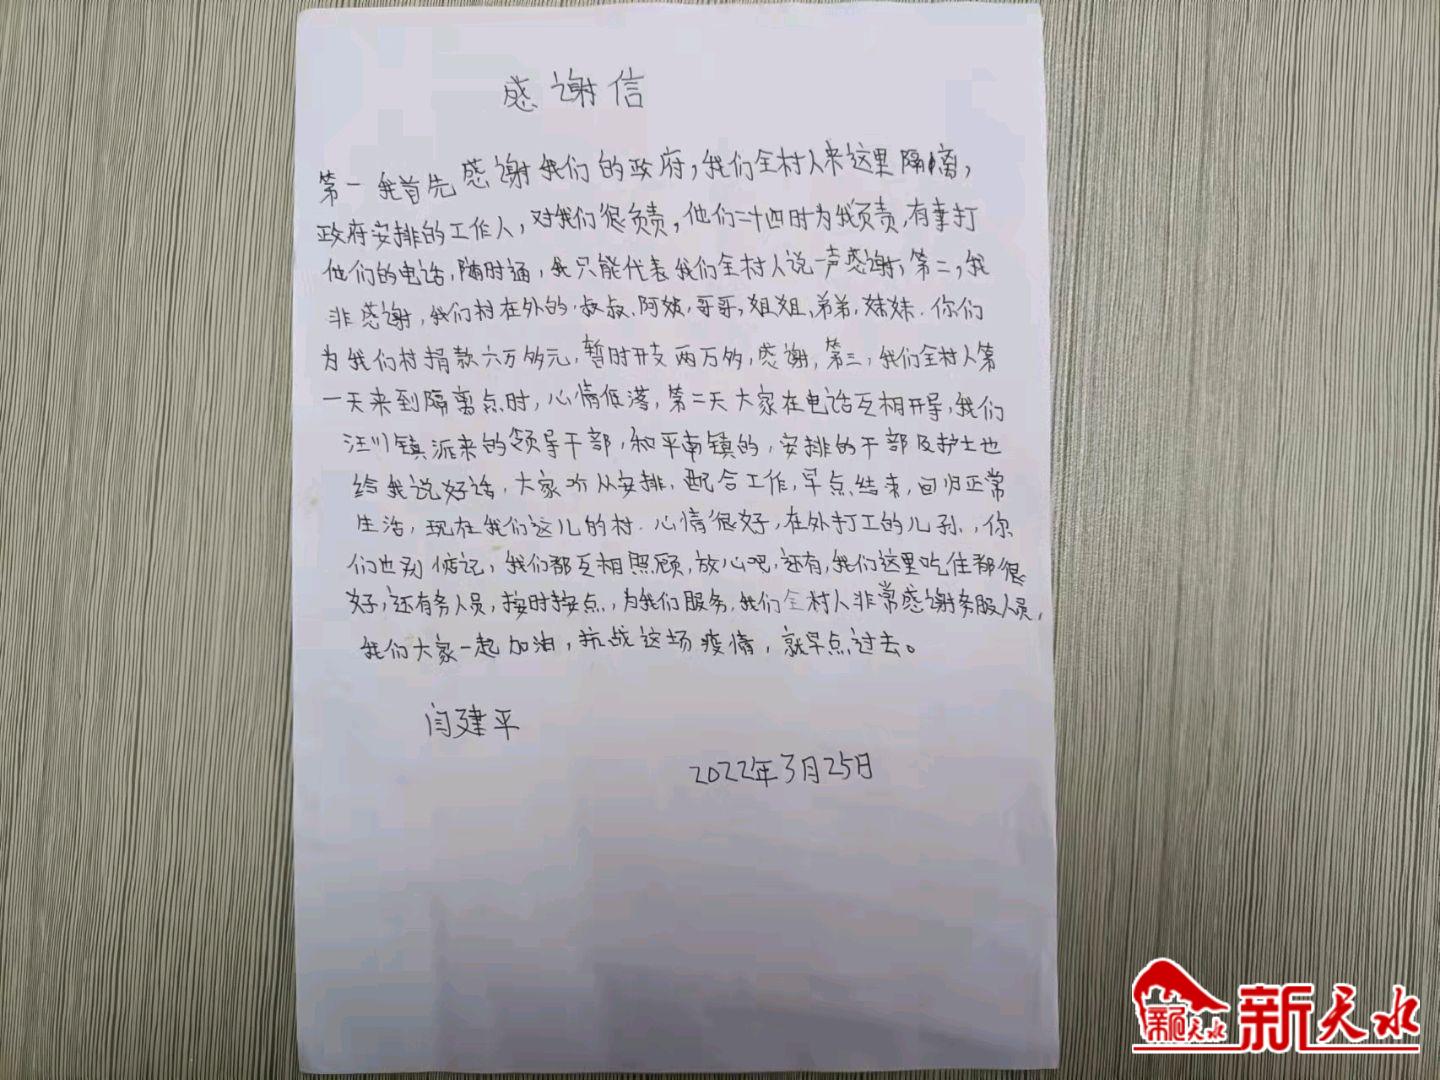 感谢信
第一我首先感谢我们的政府，我们全村人来这里隔离，
政府安排的工作人，对我们很负责，他们二十四时为我负责，有事打
他们的电话，随时通，我只能代表我们全村人说一声感谢，第二，我
非感谢，我们村在外的，叔叔、阿姨，哥哥，姐姐，弟弟，妹妹．你们
为我们村捐款六万多元，暂时开支两万多，感谢，第三，我们全村人第
一天来到隔离点时，心情低落，第二天大家在电话互相开导，我们
汪川镇派来的领导干部，和平南镇的，安排的干部及护士也
给我说好话，大家听从安排．配合工作，早点结束，回归正常
生活，现在我们这儿的村．心情很好，在外打工的儿孙，你
们也别惦记，我们都互相照顾，放心吧，还有，我们这里吃住都很
好，还有务人员，按时按点，为我们服务．我们全村人非常感谢务服人员，
我们大家一起加油，抗战这场疫情，就早点过去。
闫建平
2022年3月25日
新天水